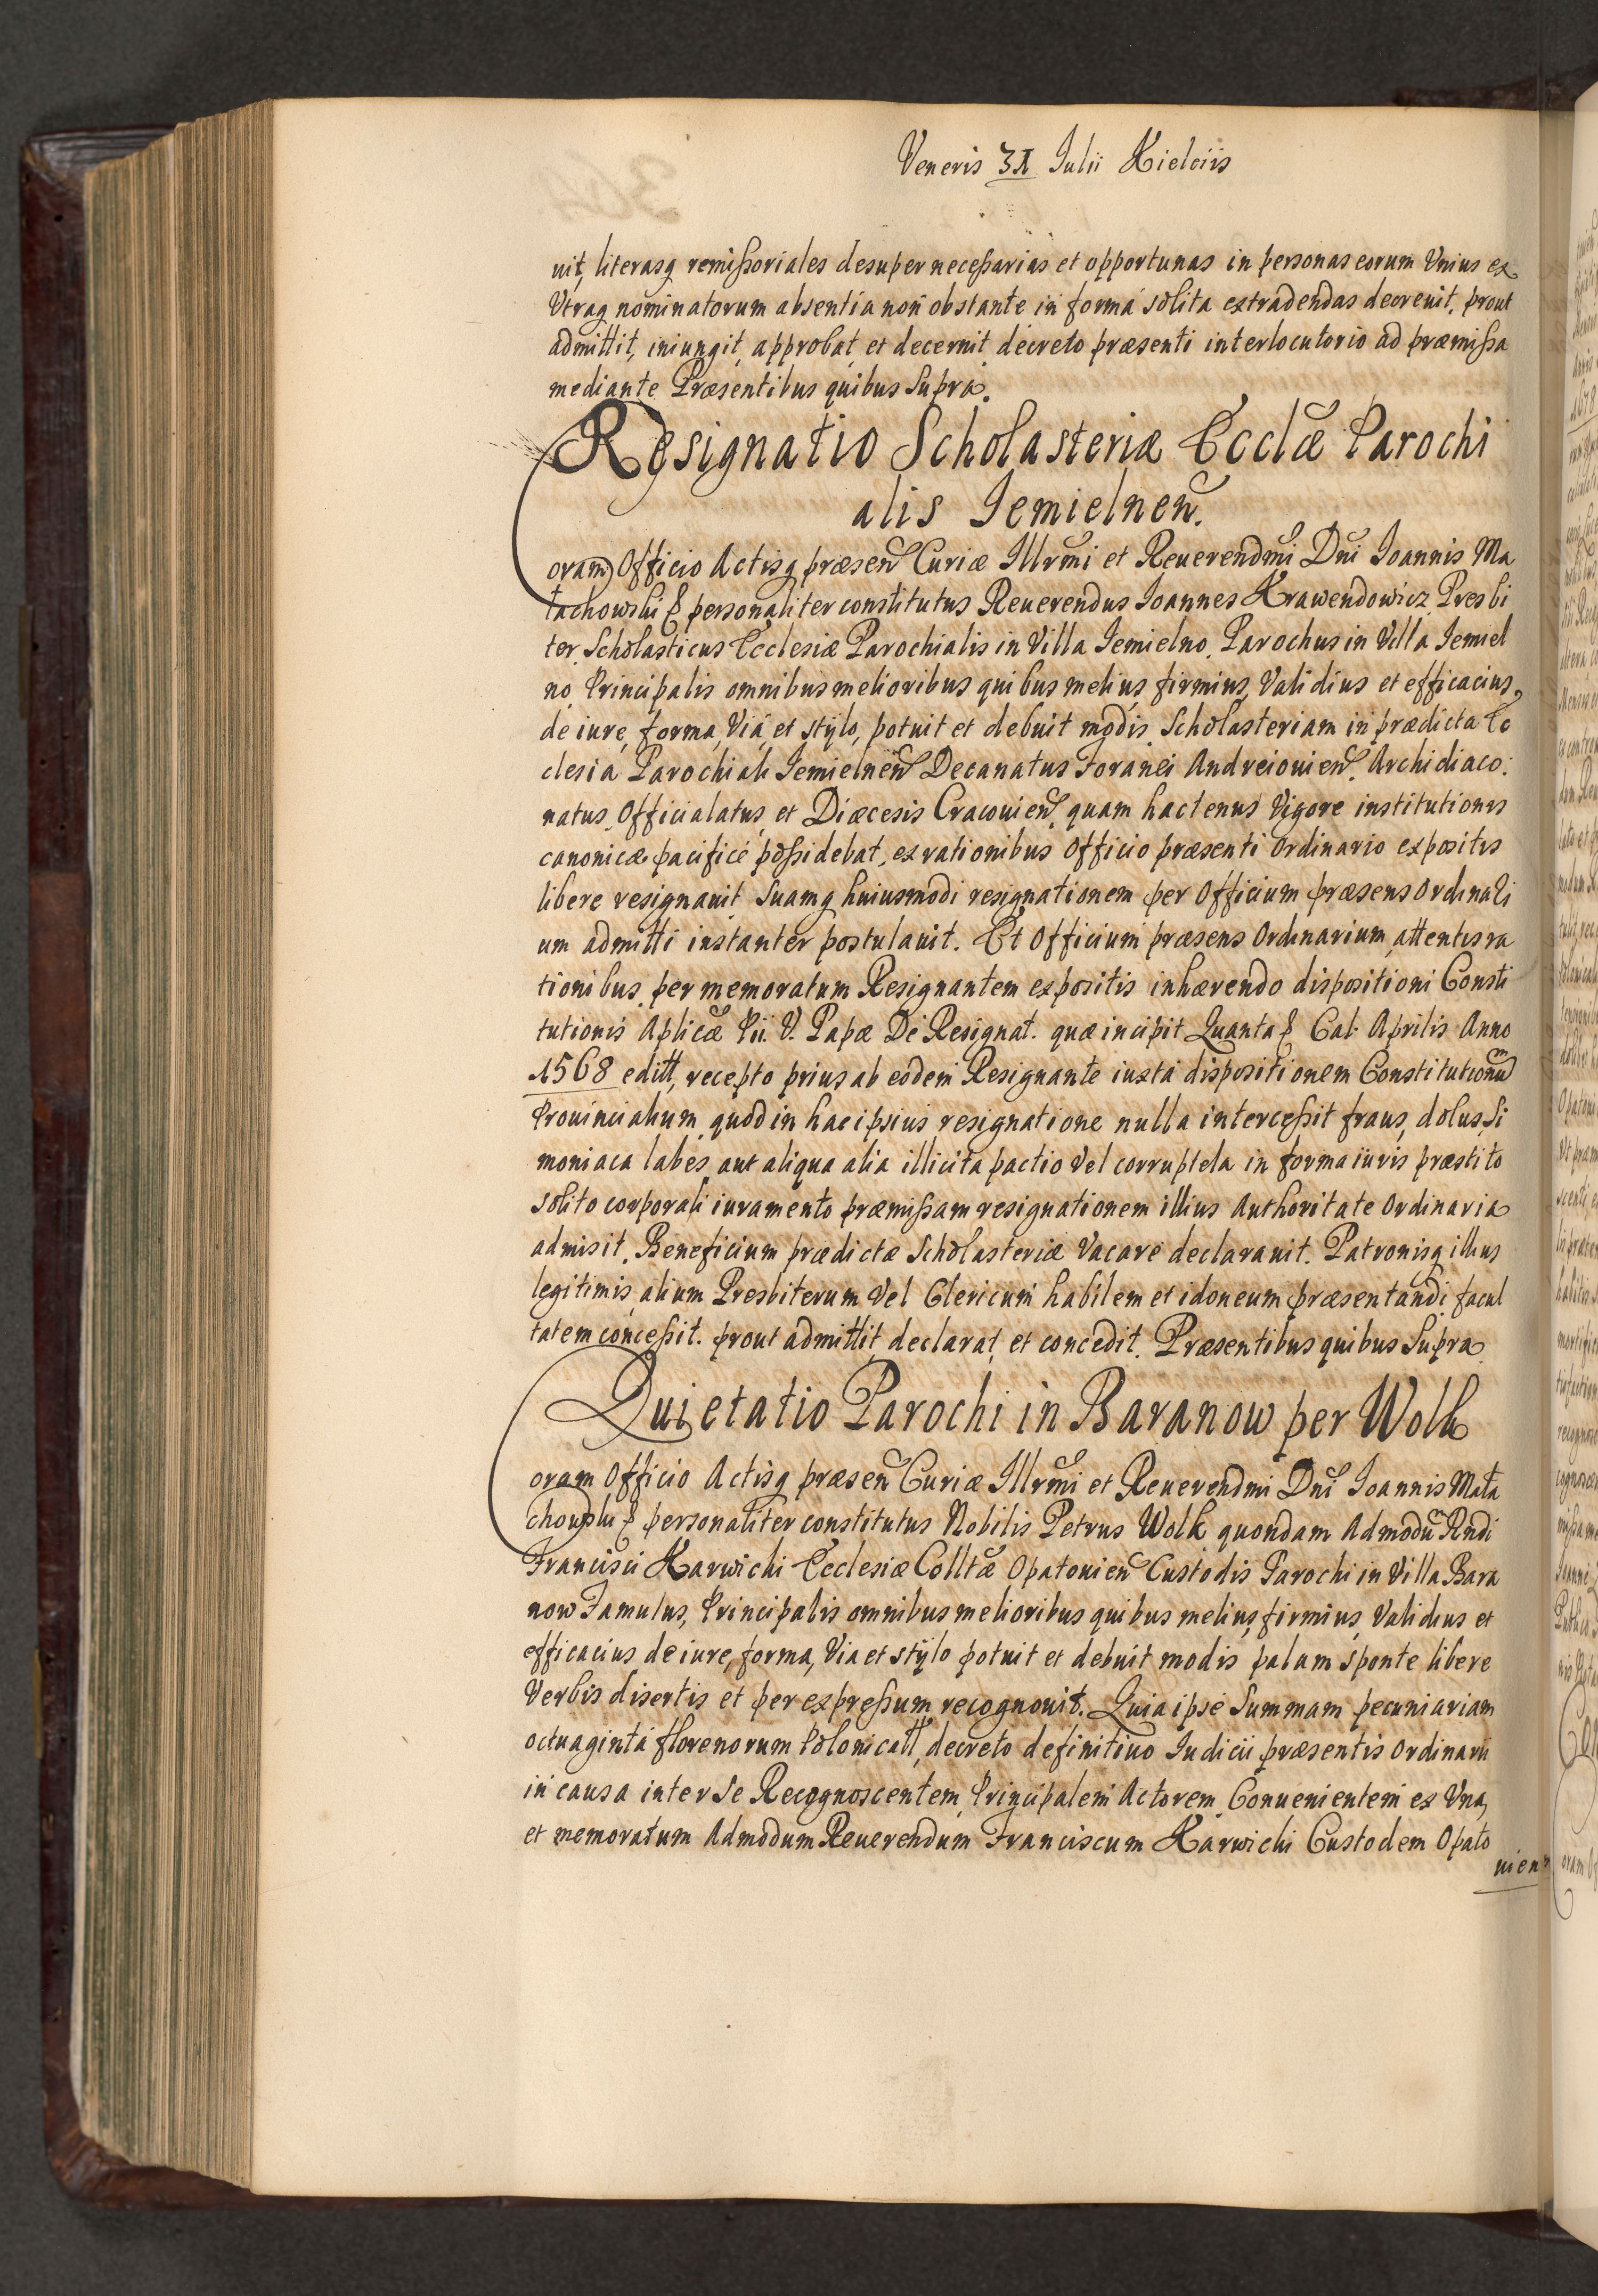 Veneris 31 Julii Kielciis
uit, literasq remissoriales desuper necessarias et opportunas in personas eorum Vnius ex
Vtraq nominatorum absentia non obstante in forma solita extradendas decreuit, prout
admittit, iniungit, approbat, et decernit, decreto præsenti interlocutorio ad præmissa
mediante Præsentibus quibus Supra.
Resignatio Scholasteriæ Ecclæ Parochi
alis Jemielnen.
Coram Officio Actisq præsen Curiæ Illrmi et Reuerendmi Dni Joannis Ma
łachowski & personaliter constitutus Reuerendus Joannes Krawendowicz Presbi
ter, Scholasticus Ecclesiæ Parochialis in Villa Jemielno, Parochus in Villa Jemiel
no, Principalis omnibus melioribus quibus melius, firmius, Validius et efficacius,
de iure, forma, Via, et stylo, potuit et debuit modis, Scholasteriam in prædicta Ec
clesia Parochiali Jemielnen Decanatus Foranei Andreiouien, Archidiaco:
natus, Officialatus, et Diæcesis Cracouien, quam hactenus Vigore institutionis
canonicæ pacifice possidebat, ex rationibus Officio præsenti Ordinario expositis
libere resignauit Suamq huiusmodi resignationem per Officium præsens Ordinari
um admitti instanter postulauit. Et Officium præsens Ordinarium, attentis ra
tionibus, per memoratum Resignantem expositis inhærendo dispositioni Consti
tutionis Aplicæ Pii. V. Papæ De Resignat. quæ incipit Quanta & Cal. Aprilis Anno
1568 editt, recepto prius ab eodem Resignante iuxta dispositionem Constitutionum
Prouincialium, quod in hac ipsius resignatione nulla intercessit fraus, dolus, Si
moniaca labes, aut aliqua alia illicita pactio Vel corruptela in forma iuris præstito
solito corporali iuramento præmissam resignationem illius Authoritate Ordinaria
admisit, Beneficium prædictæ Scholasteriæ Vacare declarauit. Patronisq illius
legitimis, alium Presbiterum Vel Clericum habilem et idoneum præsentandi facul
tatem concessit. prout admittit, declarat, et concedit. Præsentibus quibus Supra
Quietatio Parochi in Baranow per Wolk
Coram Officio Actisq præsen Curiæ Illrmi et Reuerendmi Dni Joannis Mała
chowski & personaliter constitutus Nobilis Petrus Wolk quondam Admodu Rndi
Francisci Karwicki Ecclesiæ Colltæ Opatouien Custodis Parochi in Villa Bara
now Famulus, Principalis omnibus melioribus quibus melius, firmius, Validius et
efficacius de iure, forma, Via et stylo potuit et debuit modis palam sponte libere
Verbis disertis et per expressum recognouit. Quia ipse Summam pecuniariam
octuaginta florenorum Polonicall, decreto definitiuo Judicii præsentis Ordinarii
in causa inter Se Recognoscentem, Principalem Actorem, Conuenientem ex Vna,
et memoratum Admodum Reuerendum Franciscum Karwicki Custodem Opato
uien